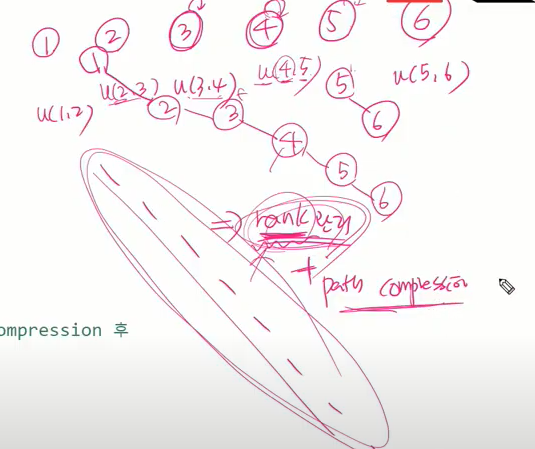 1 2 3 4 5 6
1
u(1,2) u(2,3) u(3,4) u(4,5) u(5,6)
2 3 4 5 6
5 6
rank
+ path compression
ompression 후